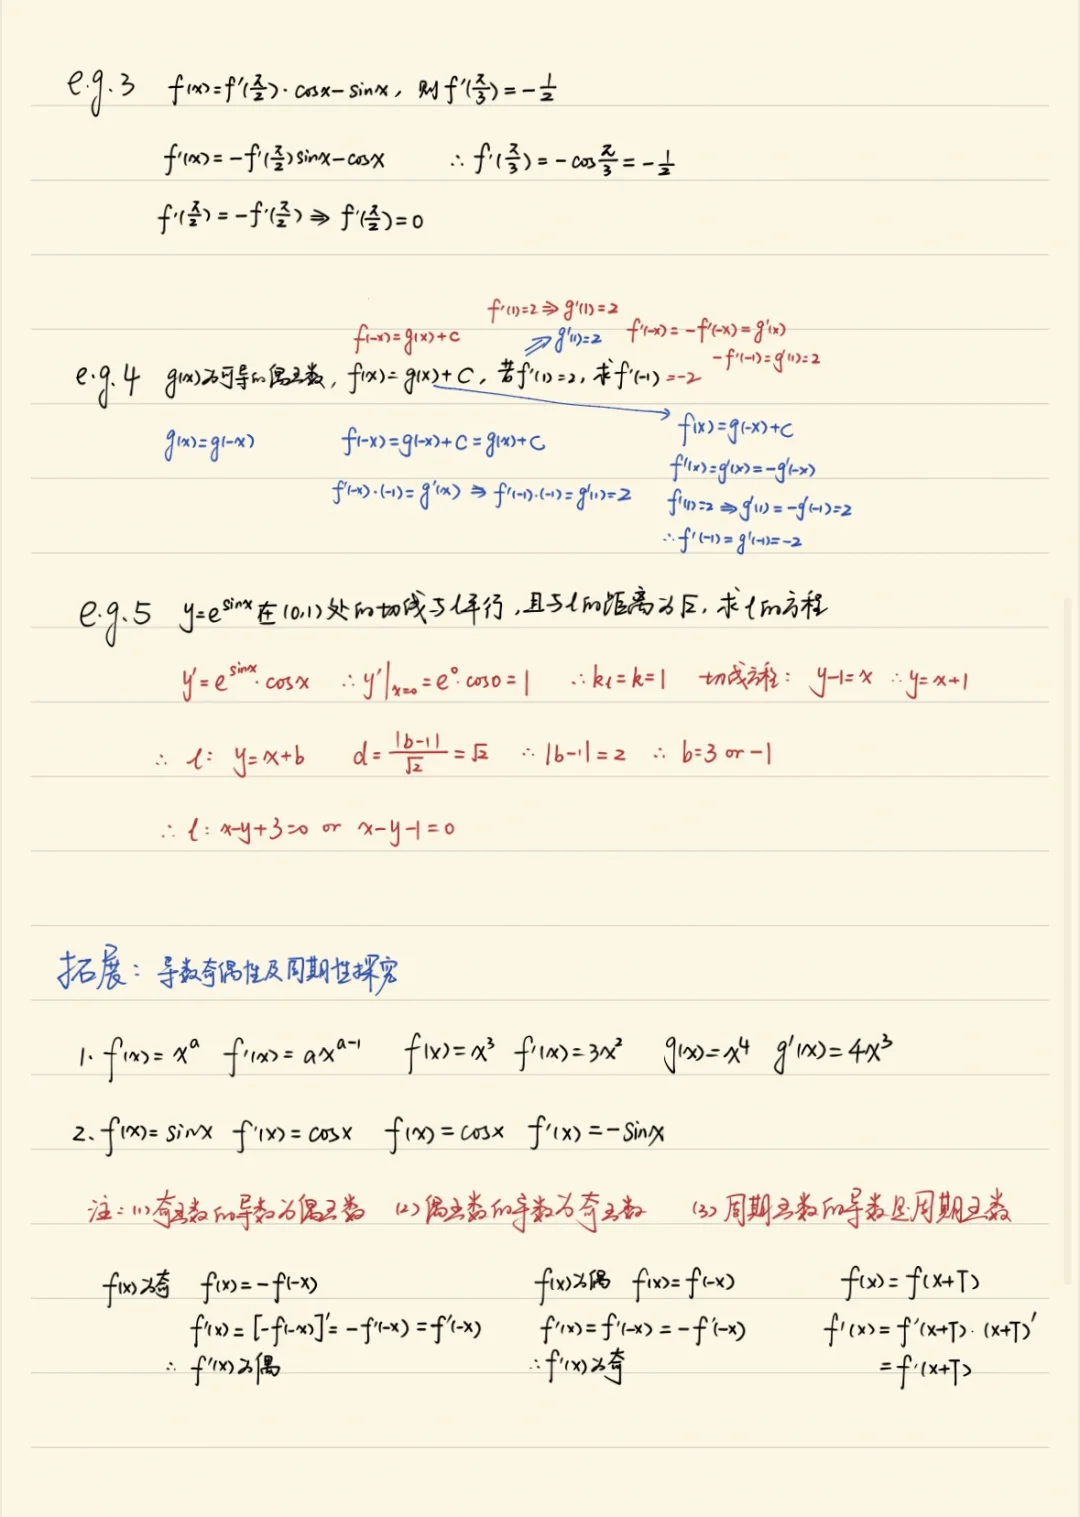 e.g.3 f(x)=f'(π/2)·cosx-sinx, 则f'(π/3)=-1/2
f'(x)=-f'(π/2)sinx-cosx ∴f'(π/3)=-cosπ/3=-1/2
f'(π/2)=-f'(π/2)⇒f'(π/2)=0
f'(1)=2⇒g'(1)=2
f(-x)=g(x)+c ⇒g'(1)=2 f'(-x)=-f'(-x)=g'(x)
-f'(-1)=g'(1)=2
e.g.4 g(x)为可导的偶函数, f(x)=g(x)+C, 若f'(1)=2, 求f'(-1)=-2
f(x)=g(-x)+C
g(x)=g(-x) f(-x)=g(-x)+C=g(x)+C
f'(x)=g'(x)=-g'(-x)
f'(-x)·(-1)=g'(x)⇒f'(-1)·(-1)=g'(1)=2
f'(1)=2⇒g'(1)=-g'(-1)=2
∴f'(-1)=g'(-1)=-2
e.g.5 y=e^sinx在(0,1)处的切线与l平行,且与l的距离为√2,求l的方程
y'=e^sinx·cosx ∴y'|x=0=e^0·cos0=1 ∴kl=k=1 切线方程: y-1=x ∴y=x+1
∴l: y=x+b d=|b-1|/√2=√2 ∴|b-1|=2 ∴b=3 or -1
∴l: x-y+3=0 or x-y-1=0
拓展: 导数奇偶性及周期性探究
1. f(x)=x^a f'(x)=ax^(a-1) f(x)=x³ f'(x)=3x² g(x)=x⁴ g'(x)=4x³
2. f(x)=sinx f'(x)=cosx f(x)=cosx f'(x)=-sinx
注:(1)奇函数的导数为偶函数 (2)偶函数的导数为奇函数 (3)周期函数的导数是周期函数
f(x)为奇 f(x)=-f(-x) f(x)为偶 f(x)=f(-x) f(x)=f(x+T)
f'(x)=[-f(-x)]'=-f'(-x)=f'(-x) f'(x)=f'(-x)=-f'(-x) f'(x)=f'(x+T)·(x+T)'
∴f'(x)为偶 ∴f'(x)为奇 =f'(x+T)